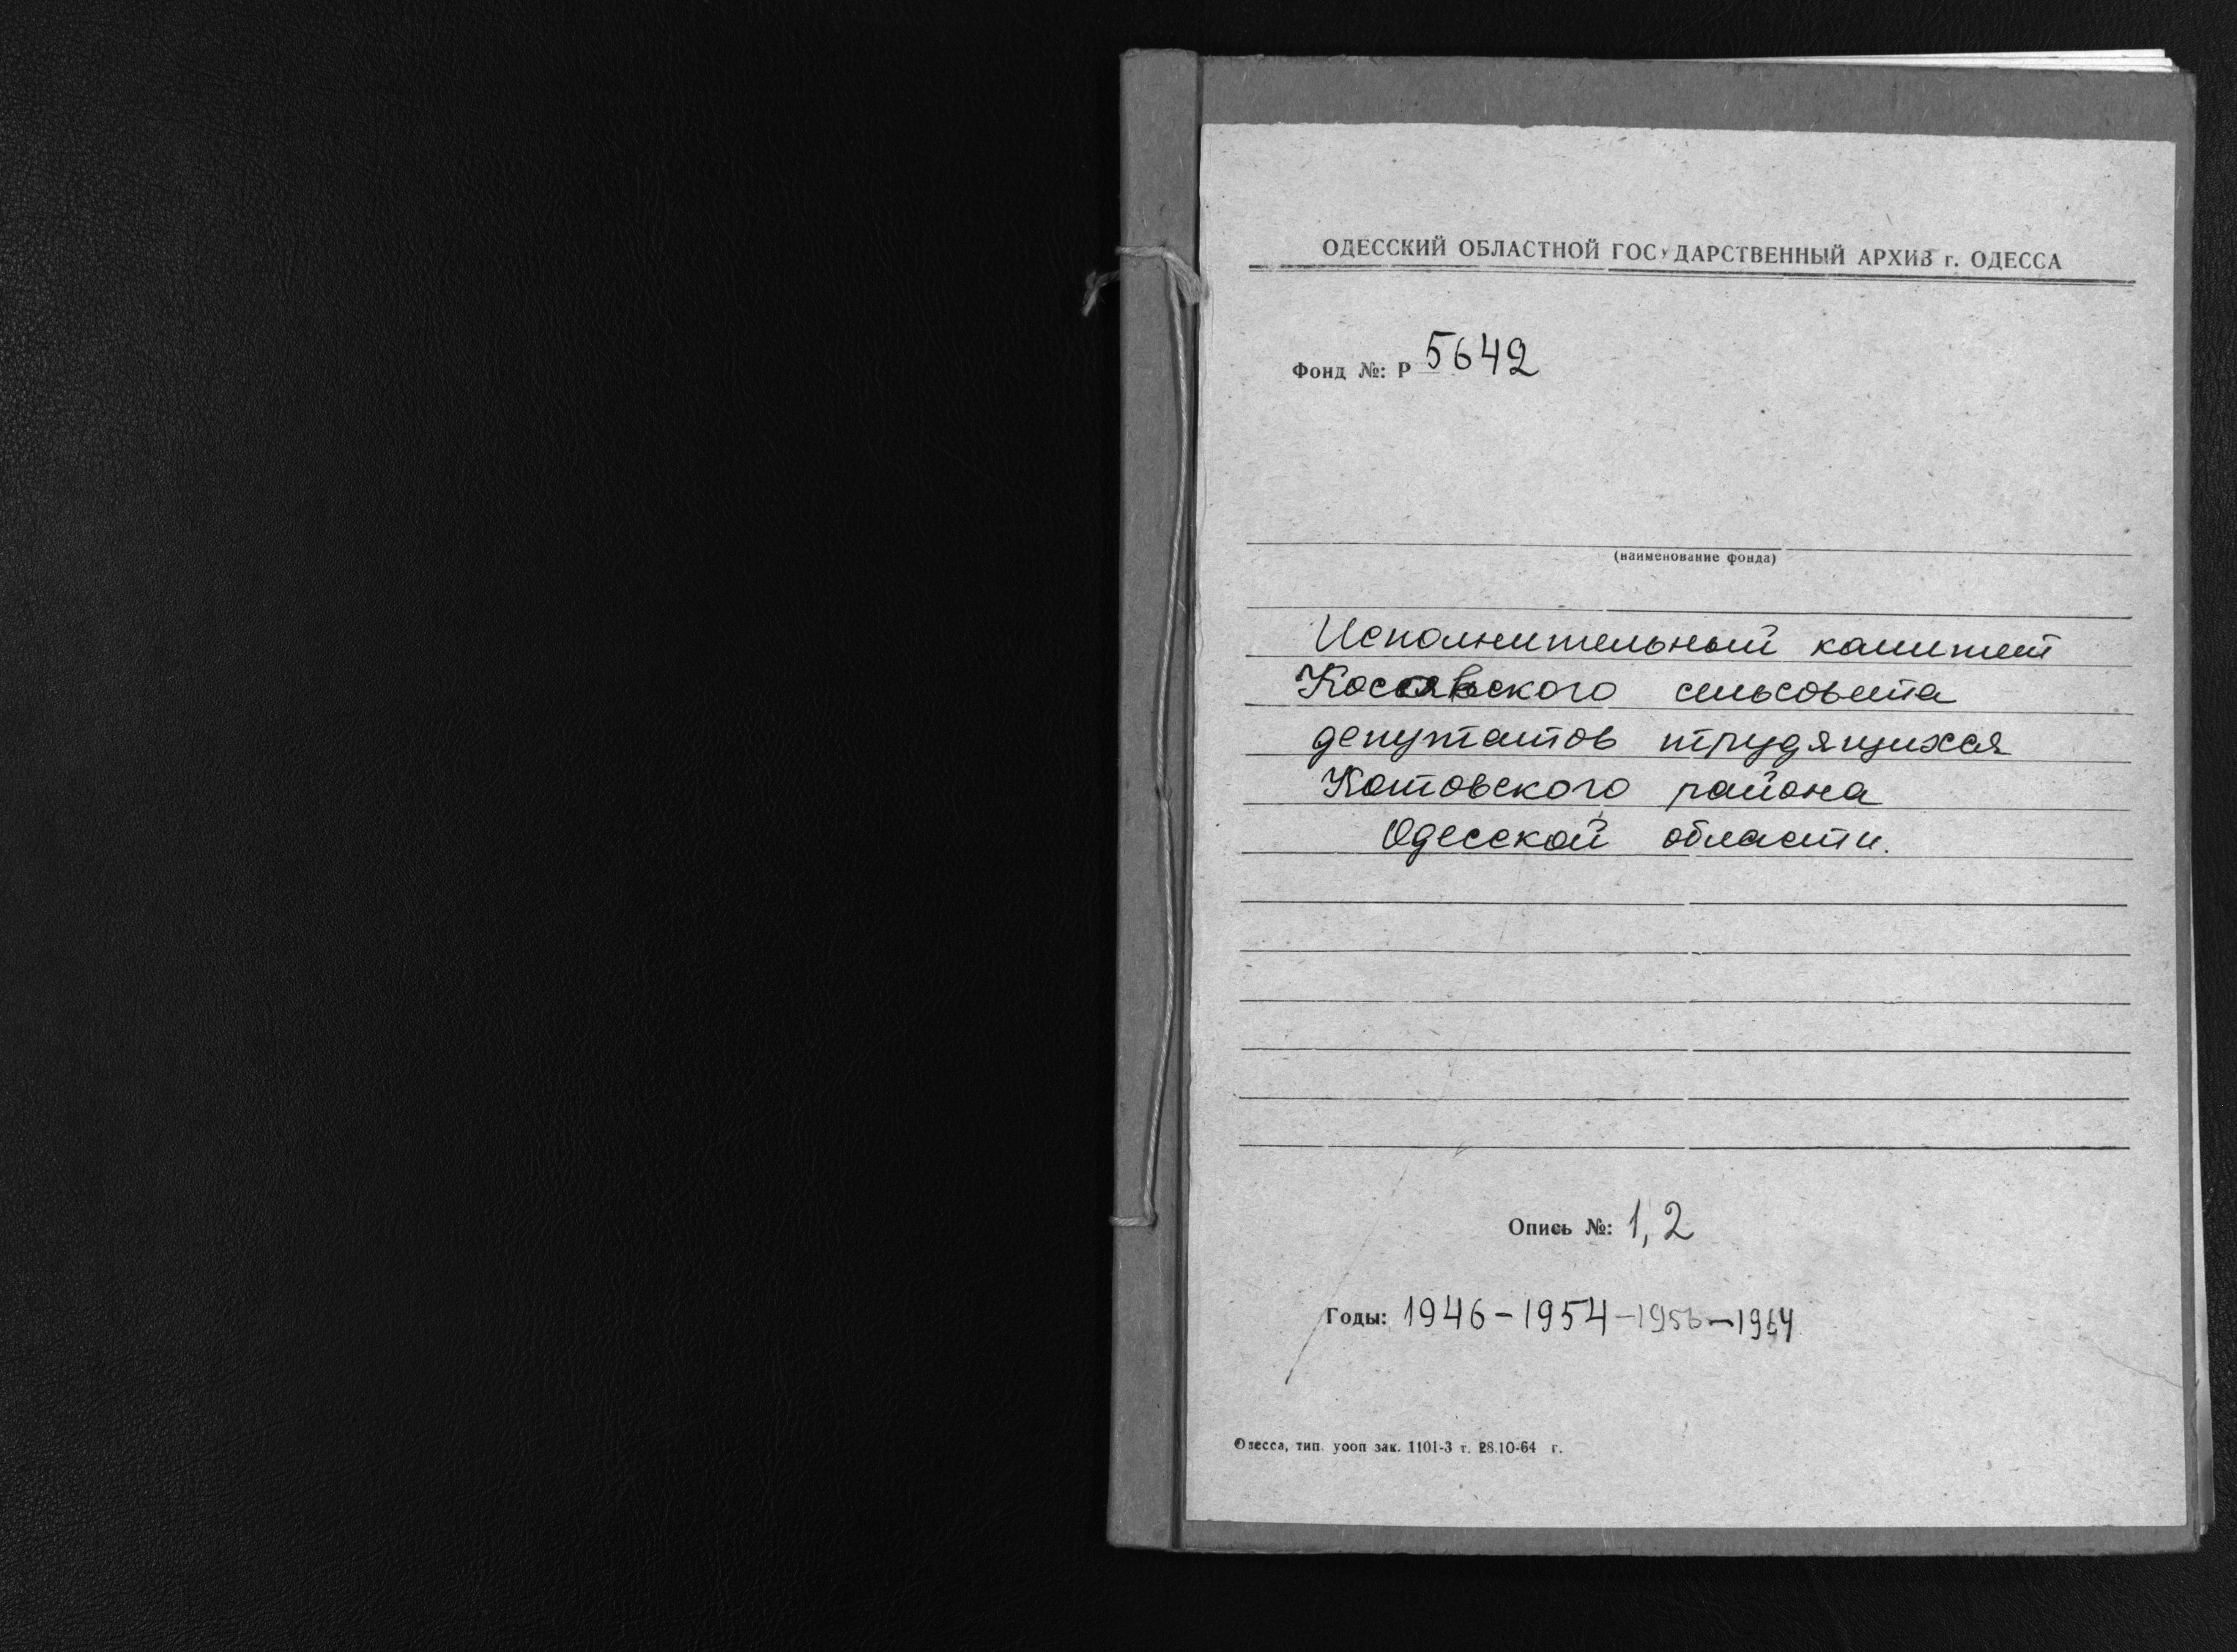 ОДЕССКИЙ ОБЛАСТНОЙ ГОСУДАРСТВЕННЫЙ АРХИВ г. ОДЕССА
Фонд №: Р 5642
(наименование фонда)
Исполнительный комитет
сельсовета
депутатов трудящихся
Котовского района
Одесской области.
Опись №: 1, 2
Годы: 1946-1954-1956-1964
Одесса, тип. уооп зак. 1101-3 т. 28.10-64 г.